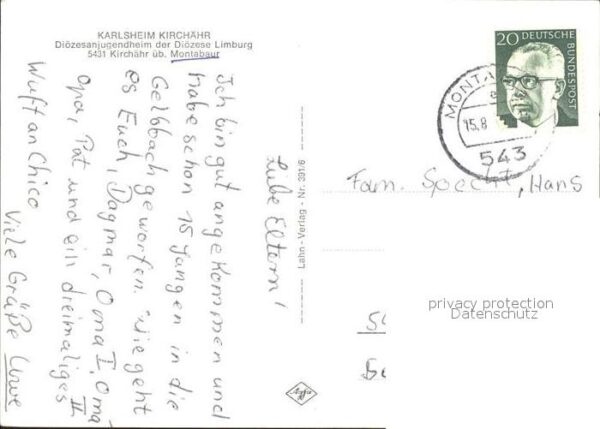 KARLSHEIM KIRCHÄHR
Diözesanjugendheim der Diözese Limburg
5431 Kirchähr üb. Montabaur
Liebe Eltern!
Ich bin gut angekommen und
habe schon 15 Jungen in die
Gelbbach geworfen. Wie geht
es Euch, Dagmar, Oma I, Oma II
Opa, Pat und ein dreimaliges
Wuff an Chico
Viele Grüße Uwe
Lahn-Verlag - Nr. 391/6
Agfa
20
DEUTSCHE
BUNDESPOST
MONTA
15.8
543
Fam. Specht, Hans
privacy protection
Datenschutz